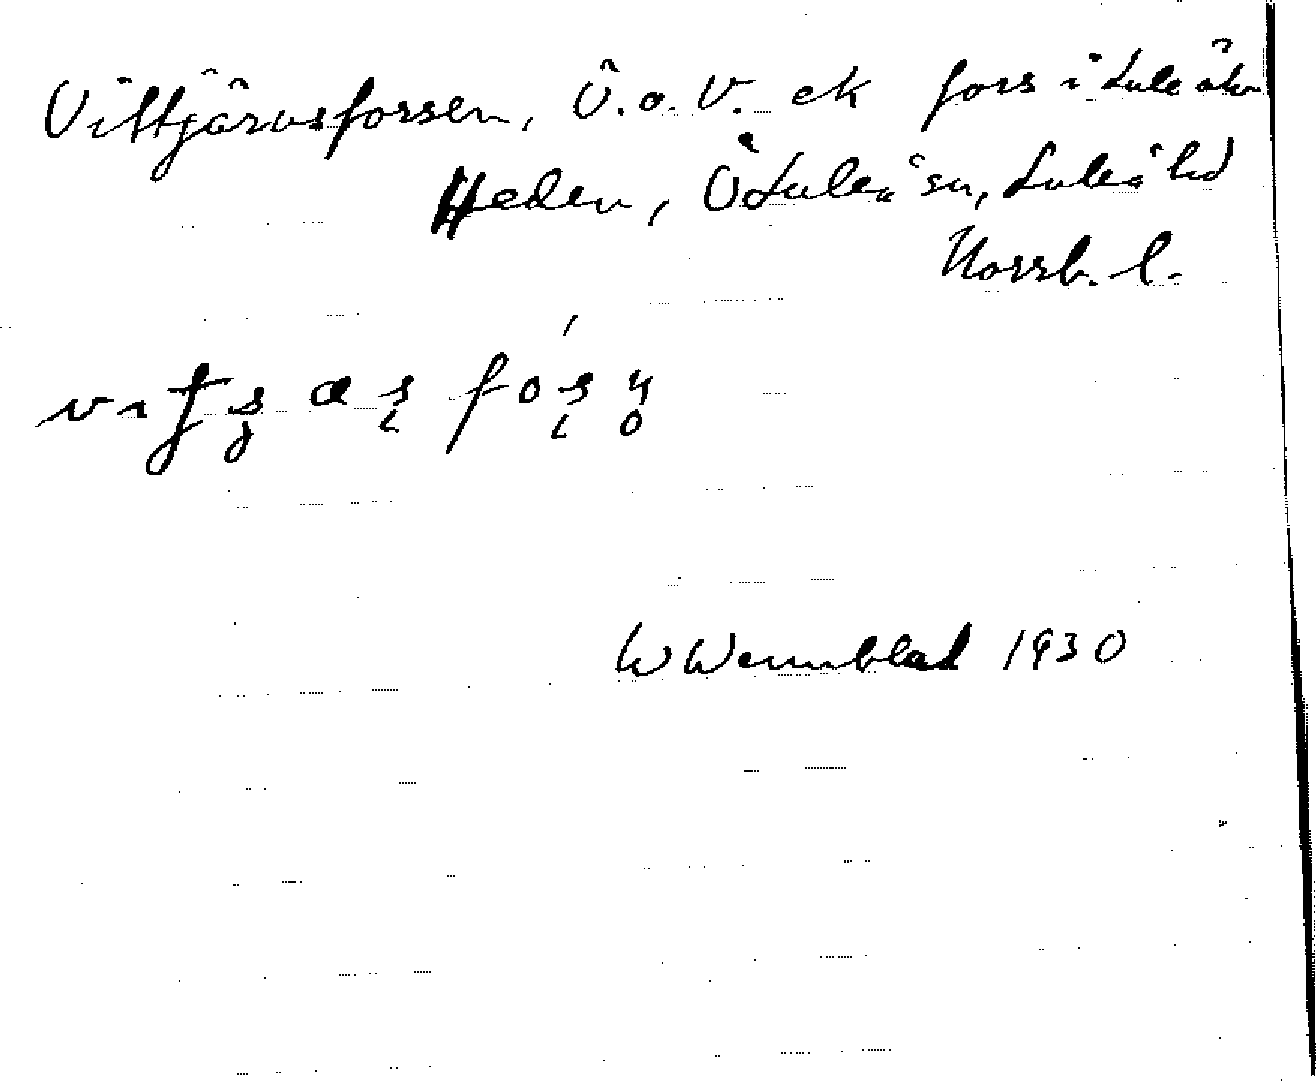 Vittjärvsforsen, Ö.o.V. ek fors i Lule älv
Heden, Ö Luleå sn, Luleå hd
Norrb. l.
W Wennblad 1930